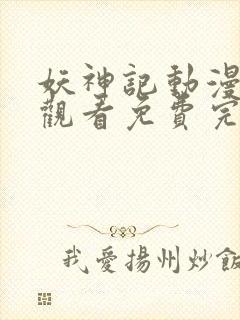 妖神記動漫
觀看免費完
我愛揚州炒飯